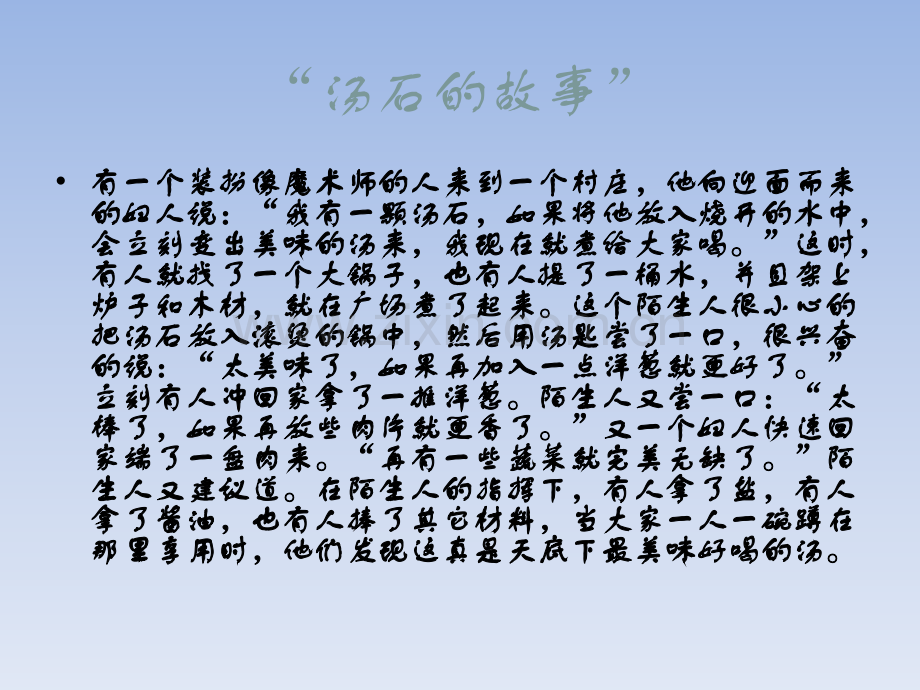 “汤石的故事”
• 有一个装扮像魔术师的人来到一个村庄，他向迎面而来
的妇人说：“我有一颗汤石，如果将他放入烧开的水中，
会立刻变出美味的汤来，我现在就煮给大家喝。”这时，
有人就找了一个大锅子，也有人提了一桶水，并且架上
炉子和木材，就在广场煮了起来。这个陌生人很小心的
把汤石放入滚烫的锅中，然后用汤匙尝了一口，很兴奋
的说：“太美味了，如果再加入一点洋葱就更好了。”
立刻有人冲回家拿了一推洋葱。陌生人又尝一口：“太
棒了，如果再放些肉片就更香了。”又一个妇人快速回
家端了一盘肉来。“再有一些蔬菜就完美无缺了。”陌
生人又建议道。在陌生人的指挥下，有人拿了盐，有人
拿了酱油，也有人捧了其它材料，当大家一人一碗蹲在
那里享用时，他们发现这真是天底下最美味好喝的汤。
www.zixin.com.cn